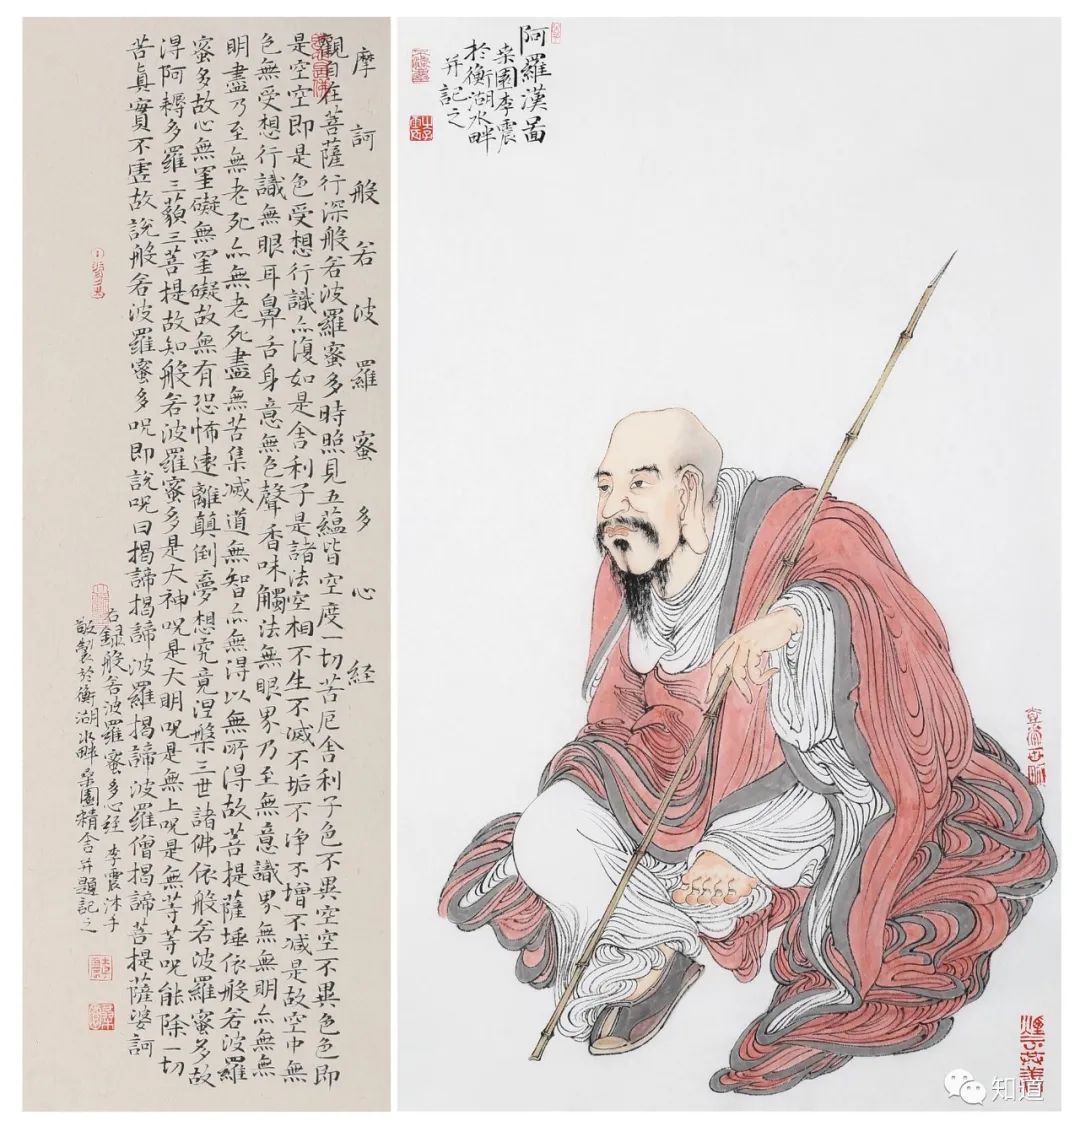 摩訶般若波羅蜜多心経
觀自在菩薩行深般若波羅蜜多時照見五蘊皆空度一切苦厄舍利子色不異空空不異色色即
是空空即是色受想行識亦復如是舍利子是諸法空相不生不滅不垢不淨不增不減是故空中無
色無受想行識無眼耳鼻舌身意無色聲香味觸法無眼界乃至無意識界無無明亦無無
明盡乃至無老死亦無老死盡無苦集滅道無智亦無得以無所得故菩提薩埵依般若波羅
蜜多故心無罣礙無罣礙故無有恐怖遠離顛倒夢想究竟涅槃三世諸佛依般若波羅蜜多故
得阿耨多羅三藐三菩提故知般若波羅蜜多是大神呪是大明呪是無上呪是無等等呪能除一切
苦真實不虛故說般若波羅蜜多呪即說呪曰揭諦揭諦波羅揭諦波羅僧揭諦菩提薩婆訶
右録般若波羅蜜多心経李震沐手
敬製於衡湖水畔桑園精舍并題記之
阿羅漢啚
桑園李震
於衡湖水畔
并記之
知道